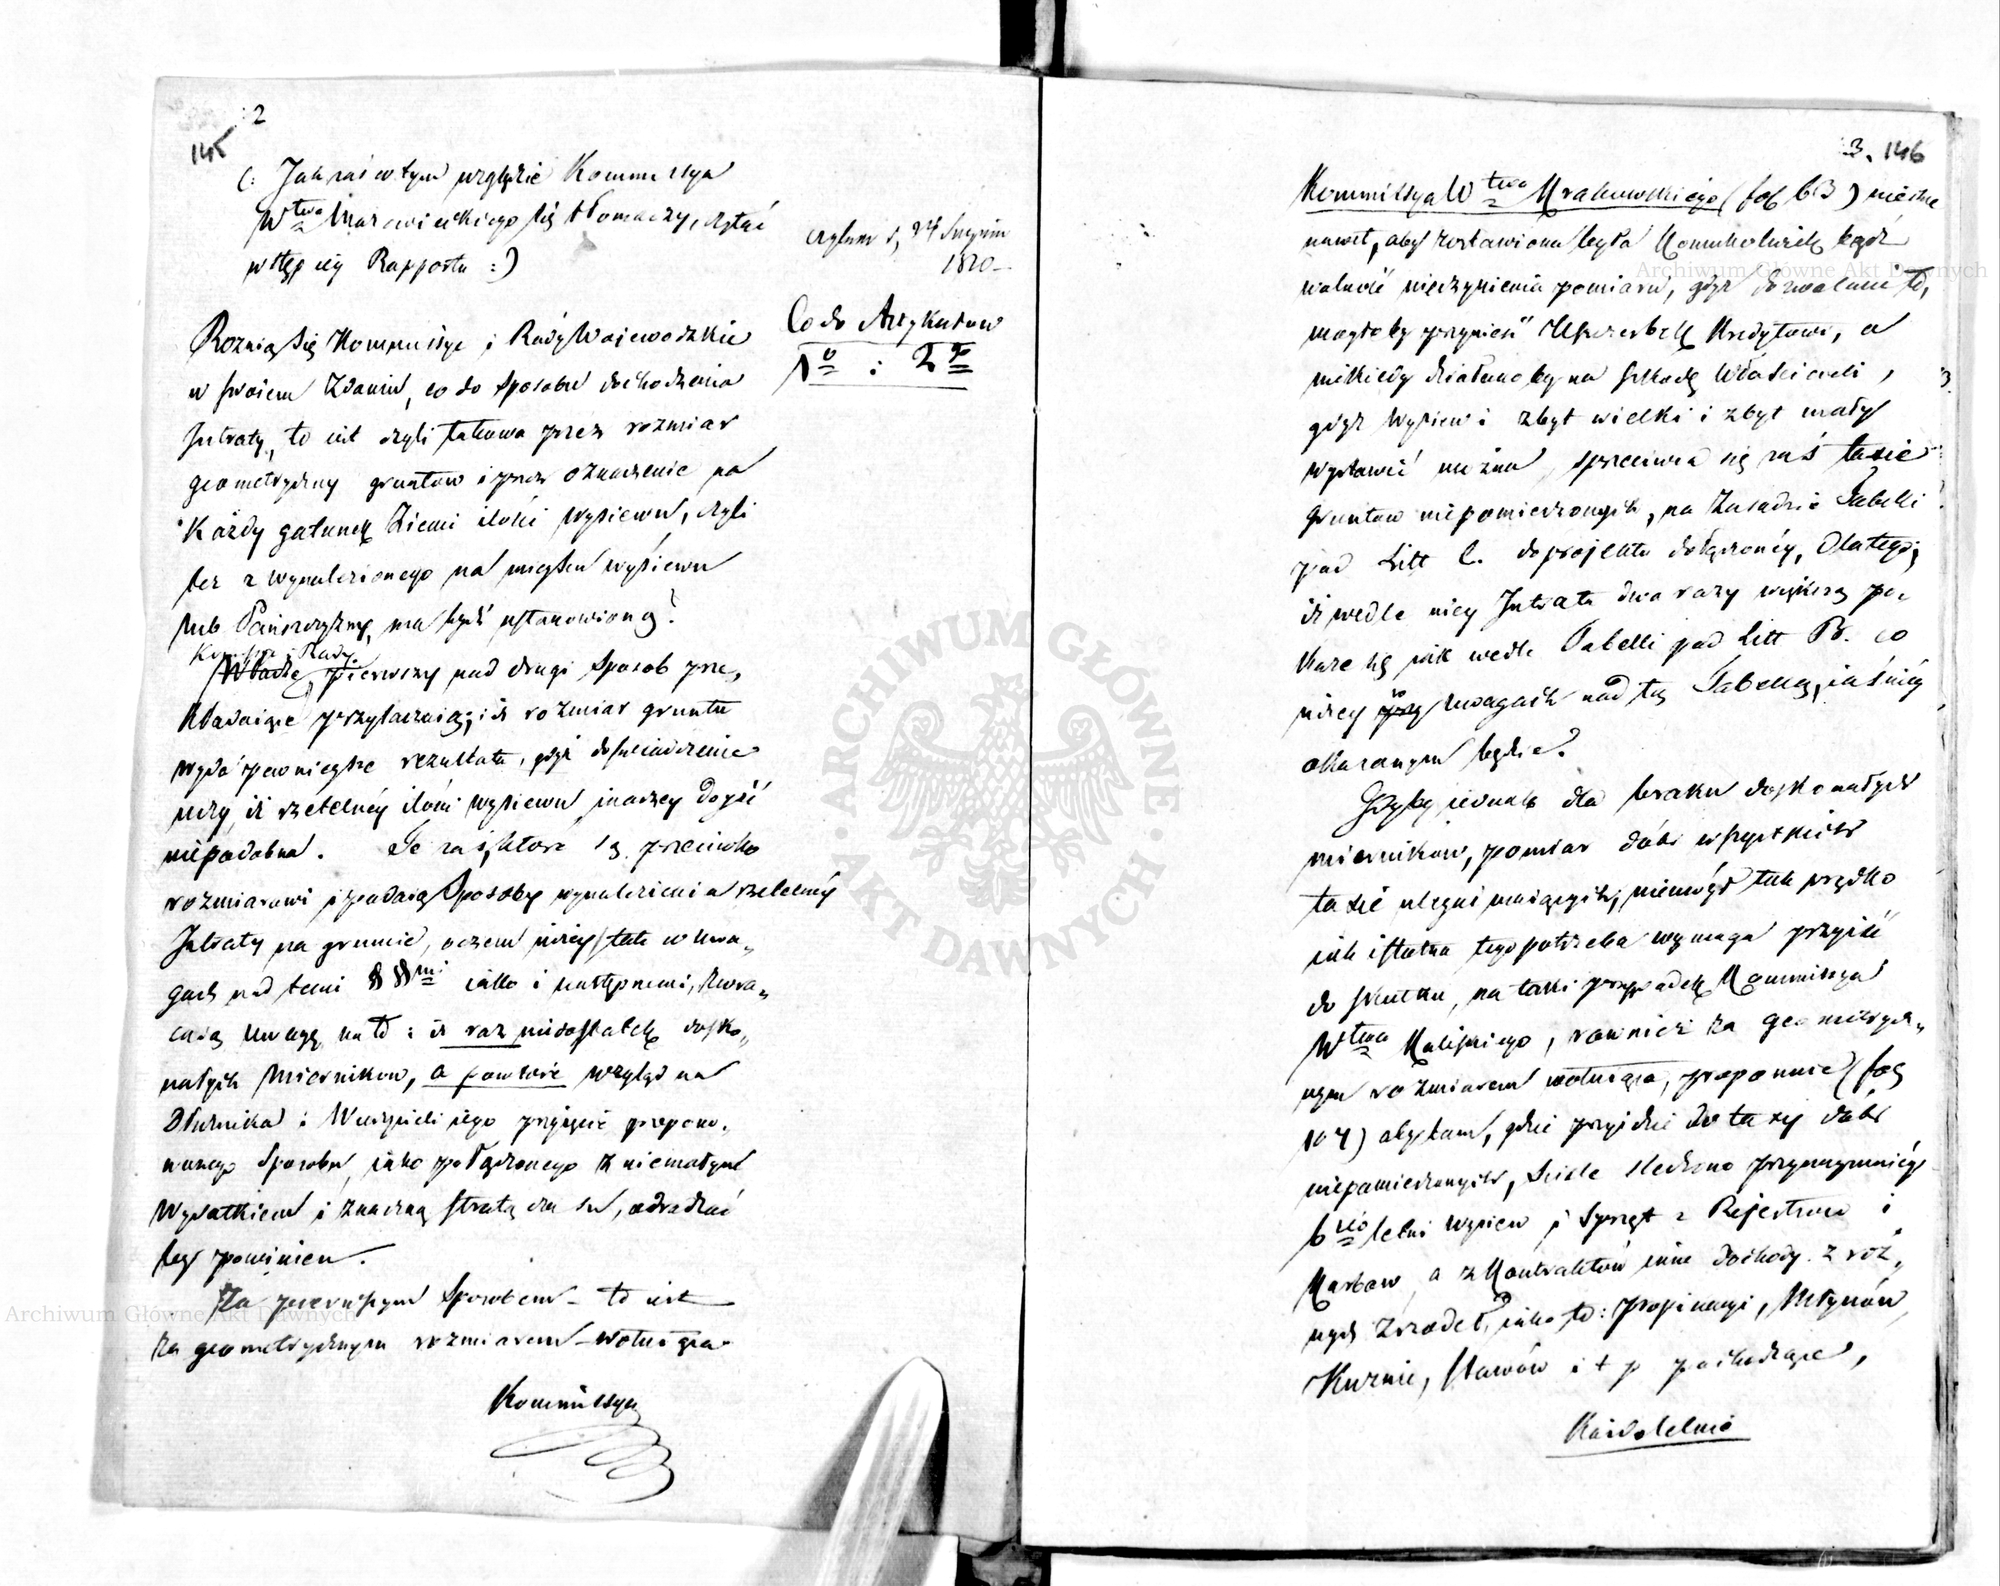 2
145
(: Jak zaś w tym względzie Kommissya
Wtwa Mazowieckiego się tłomaczy, czytać
wstęp iey Rapportu :)
czytano d, 24 Sierpnia
1820
Co do Artykułow
1o i 2o
Roznią się Kommissye i Rady Woiewodzkie
w swoiem Zdaniu, co do Sposobu dochodzenia
Intraty, to iest czyli takowa przez rozmiar
geometryczny gruntow i przez oznaczenie na
Każdy gatunek Ziemi ilości wysiewu, czyli
też z wynalezionego na mieyscu wysiewu
lub Pańszczyzny, ma bydź ustanowioną?
Kommissye i Rady
Władze, pierwszy nad drugi Sposob prze-
kładaiące przytaczaią; iż rozmiar gruntu
wyda pewnieysze rezultata, gdyż doświadczenie
uczy, iż rzetelnéy ilości wysiewu inaczey doyść
niepodobna. Te zaś, które są przeciwko
rozmiarowi i podaią Sposoby wynalezienia rzetelnéy
Intraty na gruncie, oczem niżey tak w uwa-
gach nad temi §§mi iako i następnemi, zwra-
caią uwagę na to: iż raz niedostatek dosko-
nałych Miernikow, a powtóre wzgląd na
Dłużnika i Wierzycieli iego przyięcie propono-
wanego Sposobu, iako połączonego z niemałym
wydatkiem i znaczną stratą czasu, odradzać
by powinien.
Za pierwszym Sposobem – to iest
za geometrycznym rozmiarem – wotuiąca
Kommissya
3. 146
Kommissya Wtwa Krakowskiego (fol 63) niechce
nawet, aby zostawiona była komukolwiek bądź
wolność nieczynienia pomiaru, gdyż dozwolenie to,
mogłoby przynieść Uszczerbek Kredytowi, a
niekiedy działanoby na szkodę Właścicieli,
gdyż Wysiew i zbyt wielki i zbyt mały
wystawić można, sprzeciwia się zaś taxie
gruntow niepomierzonych, na zasadzie Tabelli
pod Litt C. do projektu dołączonéy, dlatego,
iż wedle niey Intrata dwa razy większą po-
każe się iak wedle Tabelli pod Litt B. co
niżey w uwagach nad tą Tabellą, iaśniéy
okazanym będzie.
Gdyby iednak dla braku doskonałych
miernikow, pomiar dóbr wszystkich
taxie uledz maiących, niemógł tak prędko
iak istotna tego potrzeba wymaga przyiść
do skutku, na taki przypadek Kommissya
Wtwa Kaliskiego, rownież za geometrycz-
nym rozmiarem wotuiąca, proponuie (fol
104) ażebam, gdzie przyidzie do taxy dóbr
niepomierzonych, ściśle śledzono przynaymniéy
6cio letni wysiew i Sprzęt z Rejestrow i
Karbow, a z Kontraktów inne dochody z roż-
nych źrzodeł, iako to: Propinacyi, Młynów
Kuznic, stawów i t p pochodzące,
Każdoletnie
Archiwum Główne Akt Dawnych
Archiwum Główne Akt Dawnych
ARCHIWUM GŁÓWNE
AKT DAWNYCH